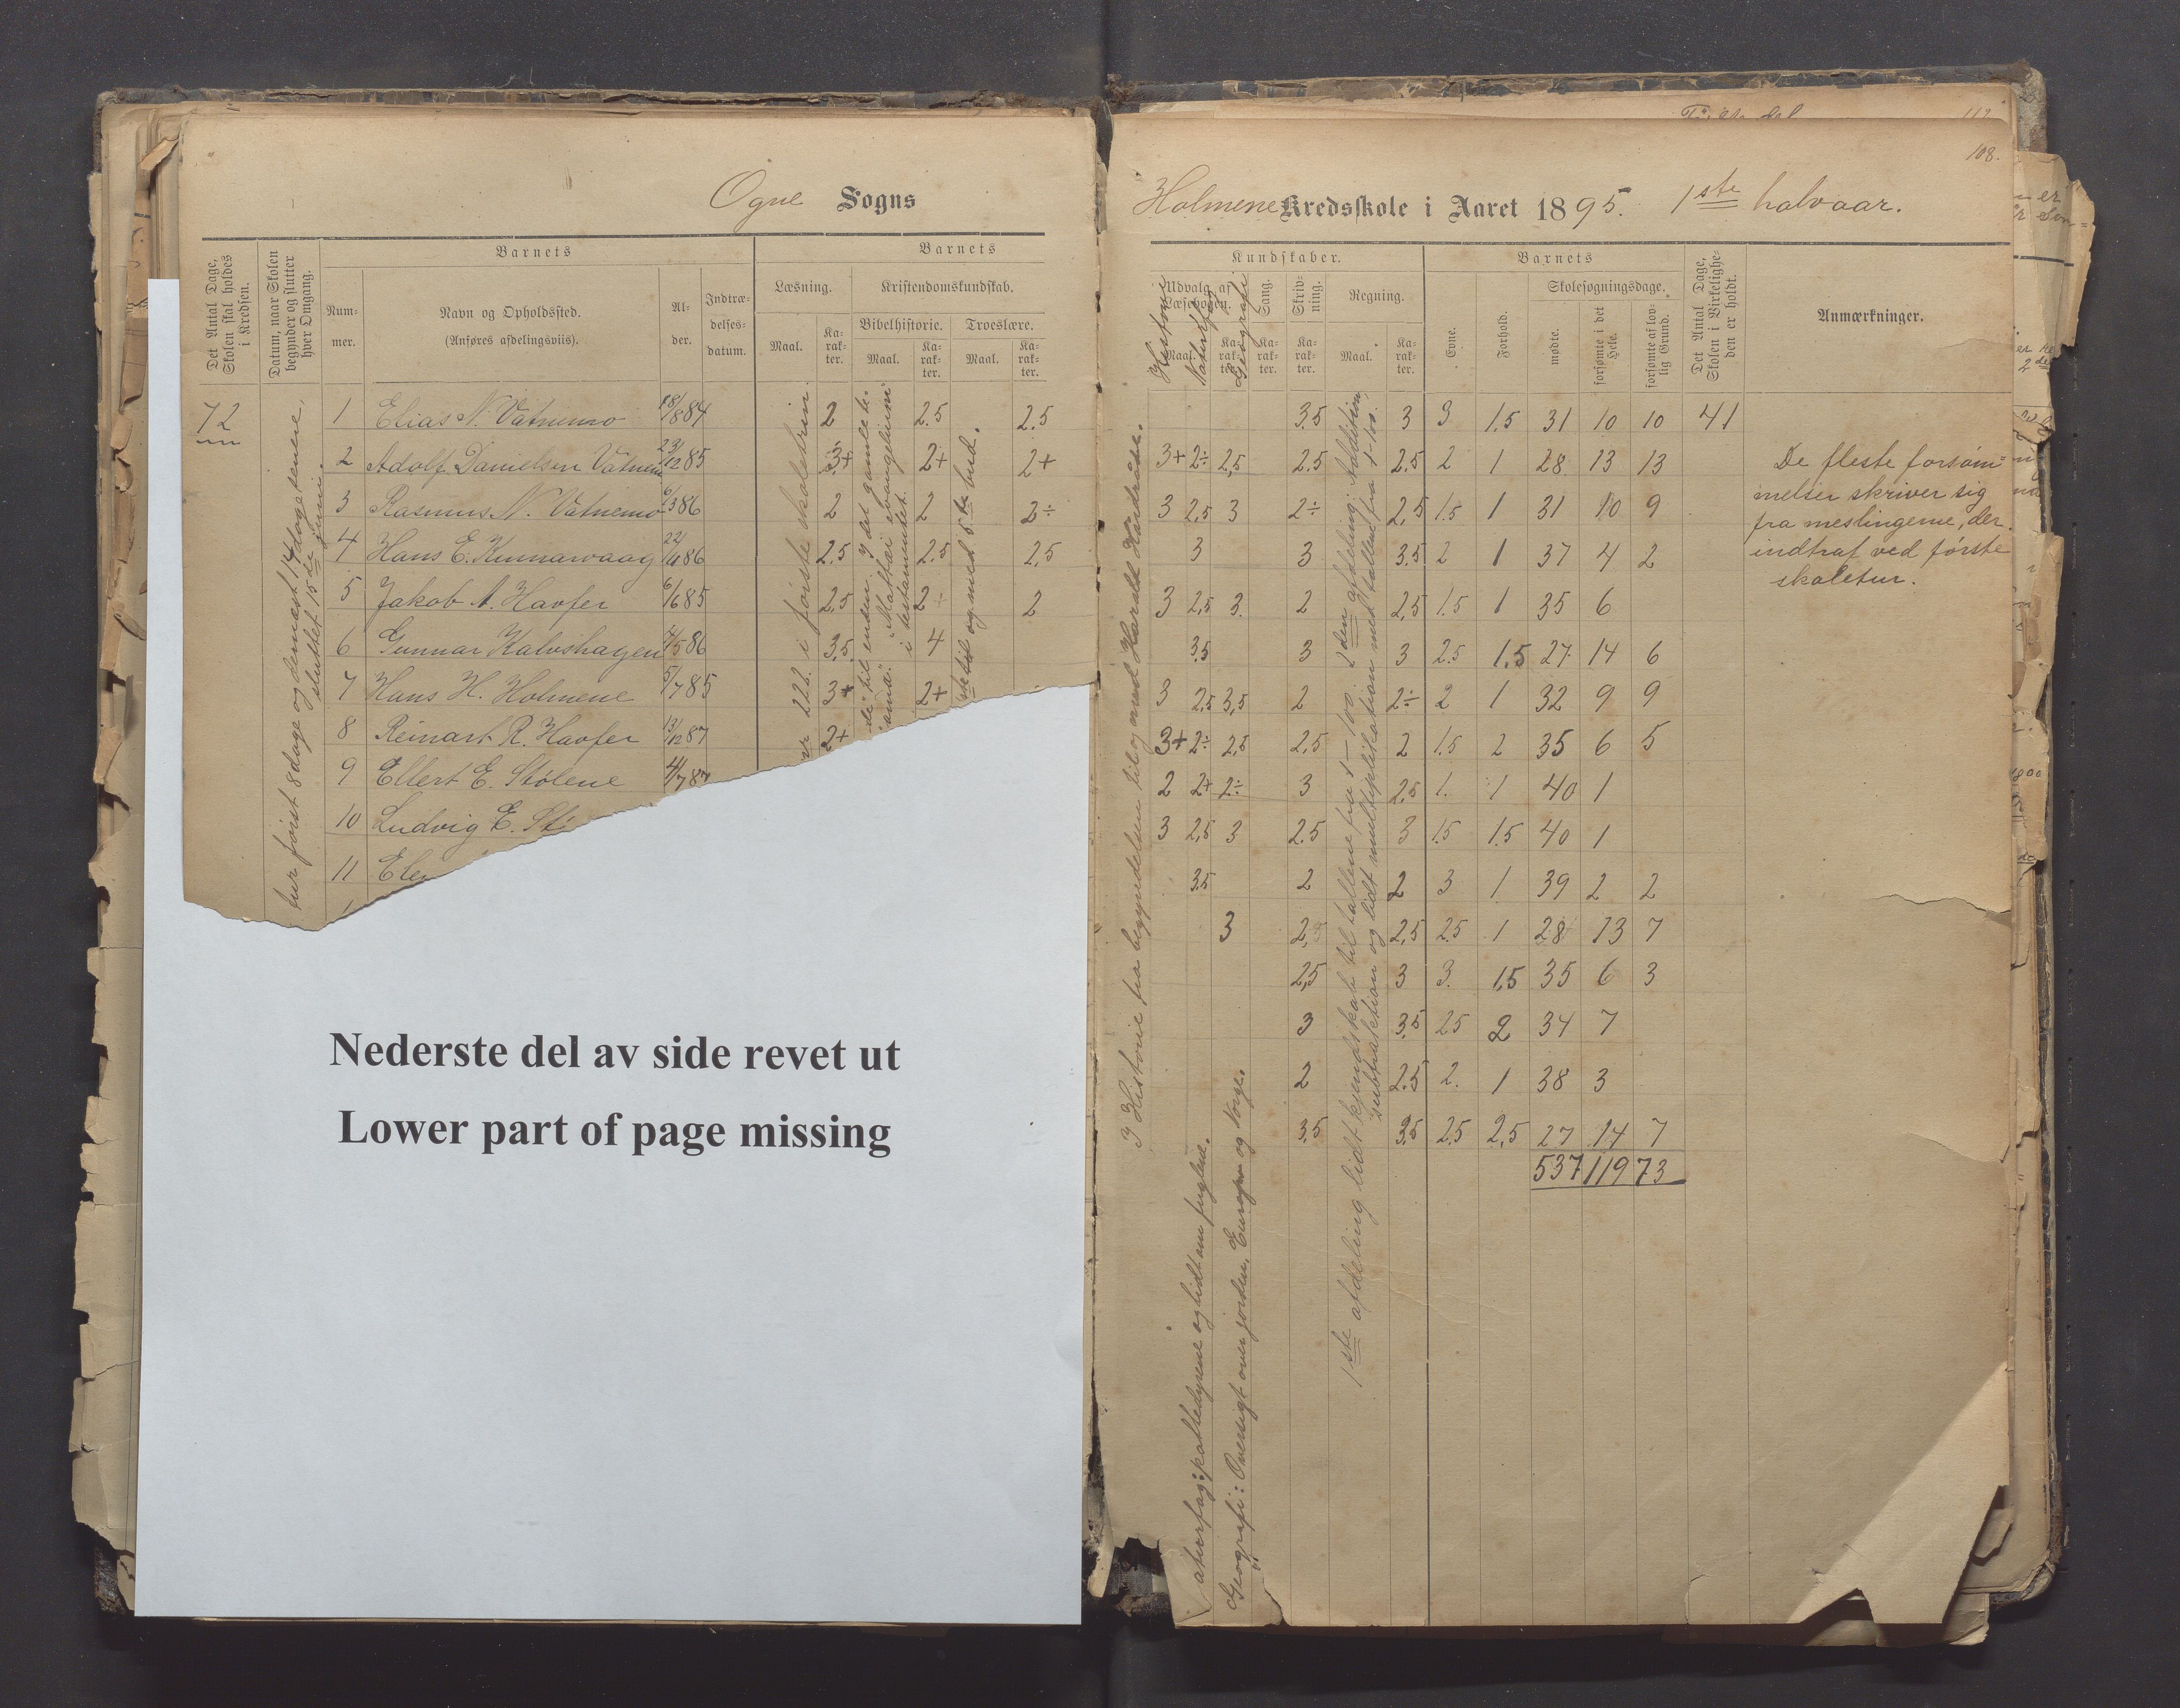 Ogne Sogns
Det Antal Dage, Skolen skal holdes i Kredsen.
Datum, naar Skolen begynder og slutter hver Omgang.
Barnets
Barnets
Num-mer.
Navn og Opholdssted.
(Anføres afdelingsviis).
Al-der.
Indtræ-delses-datum.
Læsning.
Kristendomskundskab.
Bibelhistorie.
Troeslære.
Maal.
Ka-rak-ter.
Maal.
Ka-rak-ter.
Maal.
Ka-rak-ter.
72
1 Elias N. Vatnemo 18/8 84 2 2.5 2.5
2 Adolf Danielsen Vatnemo 23/12 85 3+ 2+ 2+
3 Rasmus N. Vatnemo 6/3 86 2 2 2÷
4 Hans E. Kumarvaag 86 2.5 2.5 2,5
5 Jakob A. Havfer 6/6 85 2,5 2÷ 2
6 Gunnar Kalvshagen 4/5 86 3,5 4
7 Hans H. Holmene 5/7 85 3+ 2+
8 Reinart R. Havfer 13/12 87 2+
9 Ellert E. Stølene 4/7 87
10 Ludvig E.
11
tur først 8 dage og dernæst 14 dage
sluttet 15de juni.
222. i første skoletrin.
Nederste del av side revet ut
Lower part of page missing
108.
Holmene Kredsskole i Aaret 1895. 1ste halvaar.
Kundskaber.
Barnets
Udvalg af Læsebogen.
Historie
Naturfag
Geografi
Sang.
Skriv-ning.
Regning.
Maal.
Ka-rak-ter.
Ka-rak-ter.
Ka-rak-ter.
Maal.
Ka-rak-ter.
Evne.
Forhold.
Skolesøgningsdage.
mødte.
forsømte i det Hele.
forsømte af lov-lig Grund.
Det Antal Dage, Skolen i Virkelighe-den er holdt.
Anmærkninger.
3.5 3 3 1.5 31 10 10 41
3+ 2÷ 2,5 2.5 2.5 2 1 28 13 13
3 2,5 3 2÷ 2,5 1.5 1 31 10 9
3 3 3.5 2 1 37 4 2
3 2,5 3. 2 2,5 1.5 1 35 6
3.5 3 3 2.5 1.5 27 14 6
3 2,5 3,5 2 2÷ 2 1 32 9 9
3+ 2÷ 2,5 2,5 2 1.5 2 35 6 5
2 2+ 2÷ 3 2,5 1. 1 40 1
3 2,5 3 2.5 3 1.5 1.5 40 1
3.5 2 2 3 1 39 2 2
3 2,5 2.5 1 28 13 7
2,5 3 3. 1,5 35 6 3
3 3.5 2.5 2 34 7
2 2.5 2. 1 38 3
3.5 3.5 2.5 2,5 27 14 7
537 119 73
De fleste forsøm=
melser skriver sig
fra meslingerne, der
indtraf ved første
skoletur.
Historie fra begyndelsen til og med Harald Haardraade.
Naturfag: pattedyrene og lidt om fuglene.
Geografi: Oversigt over jorden, Europa og Norge.
1ste afdeling lidt kjendskab til tallene fra 1–100. 2den afdeling: Addition,
subtraktion og lidt multiplikation med tallene fra 1–100.